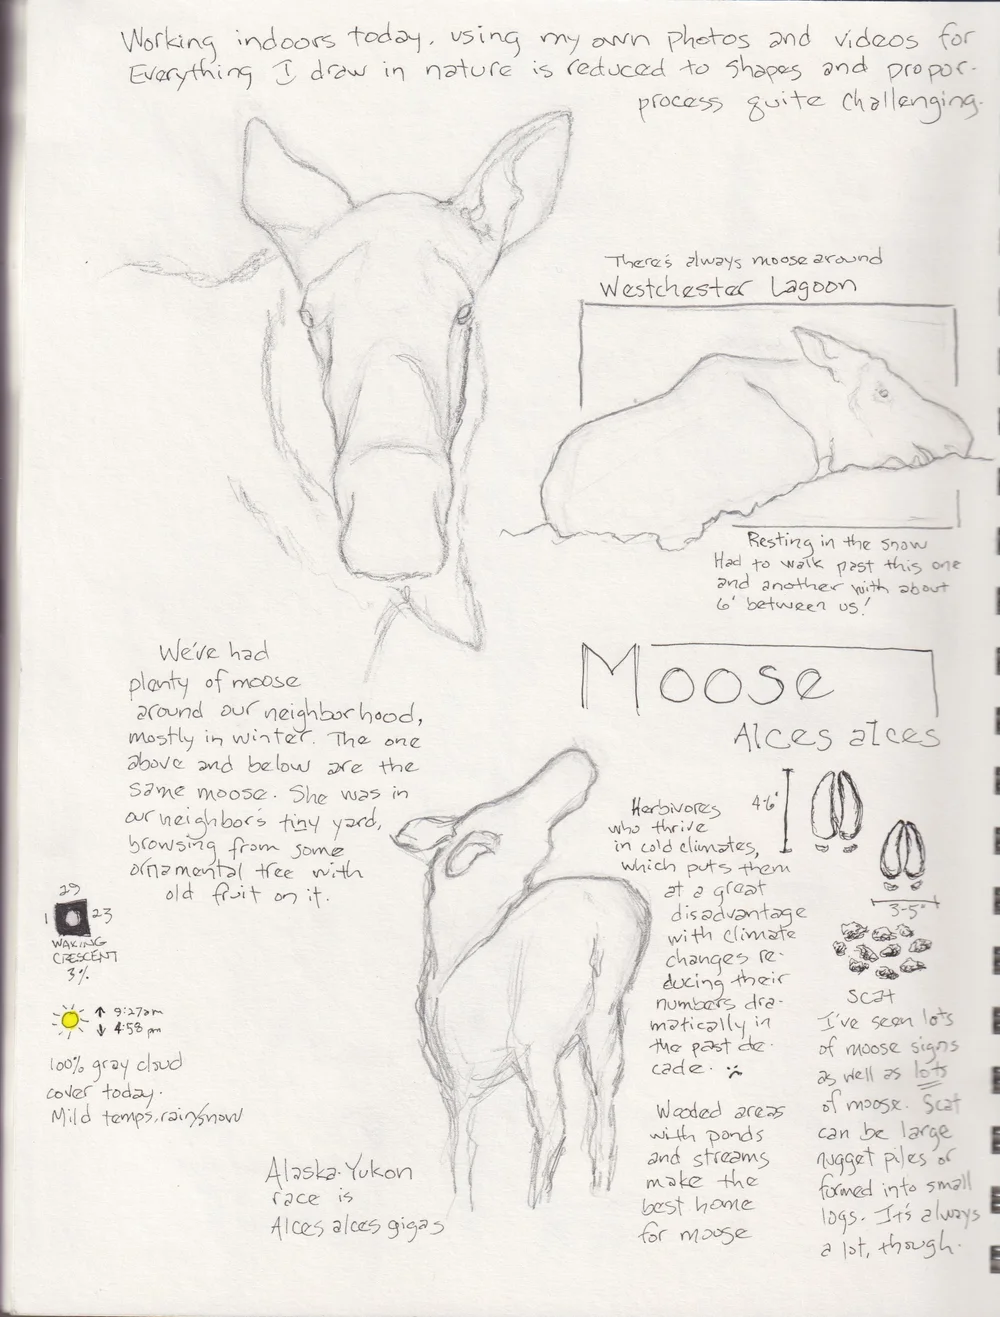 Working indoors today, using my own photos and videos for
Everything I draw in nature is reduced to shapes and propor-
process quite challenging.
There's always moose around
Westchester Lagoon
Resting in the snow
Had to walk past this one
and another with about
6' between us!
We've had
plenty of moose
around our neighborhood,
mostly in winter. The one
above and below are the
same moose. She was in
our neighbor's tiny yard,
browsing from some
ornamental tree with
old fruit on it.
Moose
Alces alces
Herbivores
who thrive
in cold climates,
which puts them
at a great
disadvantage
with climate
changes re-
ducing their
numbers dra-
matically in
the past de-
cade.
Wooded areas
with ponds
and streams
make the
best home
for moose
4-6"
3-5"
Scat
I've seen lots
of moose signs
as well as lots
of moose. Scat
can be large
nugget piles or
formed into small
logs. It's always
a lot, though.
29
1
23
WAXING
CRESCENT
3%
↑ 9:27am
↓ 4:58 pm
100% gray cloud
cover today.
Mild temps, rain/snow
Alaska-Yukon
race is
Alces alces gigas